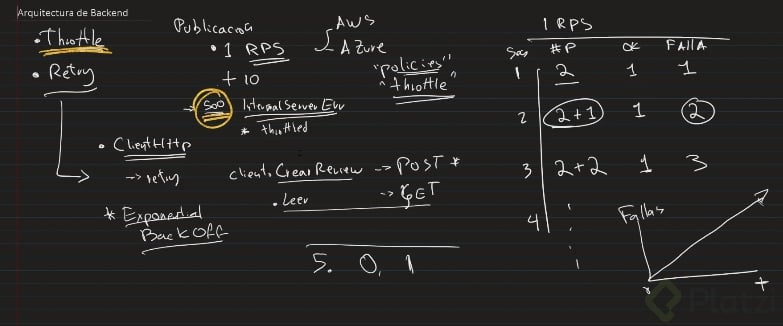 Arquitectura de Backend
• Throttle
• Retry
• ClientHttp
→ retry
* Exponential
Back OFF
Publicacion
• 1 RPS
+ 10
AWS
Azure
"policies"
"throttle"
→ 500 Internal Server Err
* throttled
client. Crear Review → POST *
• Leer → GET
5. 0, 1
1 RPS
Seg #P OK FAllA
1 2 1 1
2 2+1 1 2
3 2+2 1 3
4
Fallas
t
Platzi